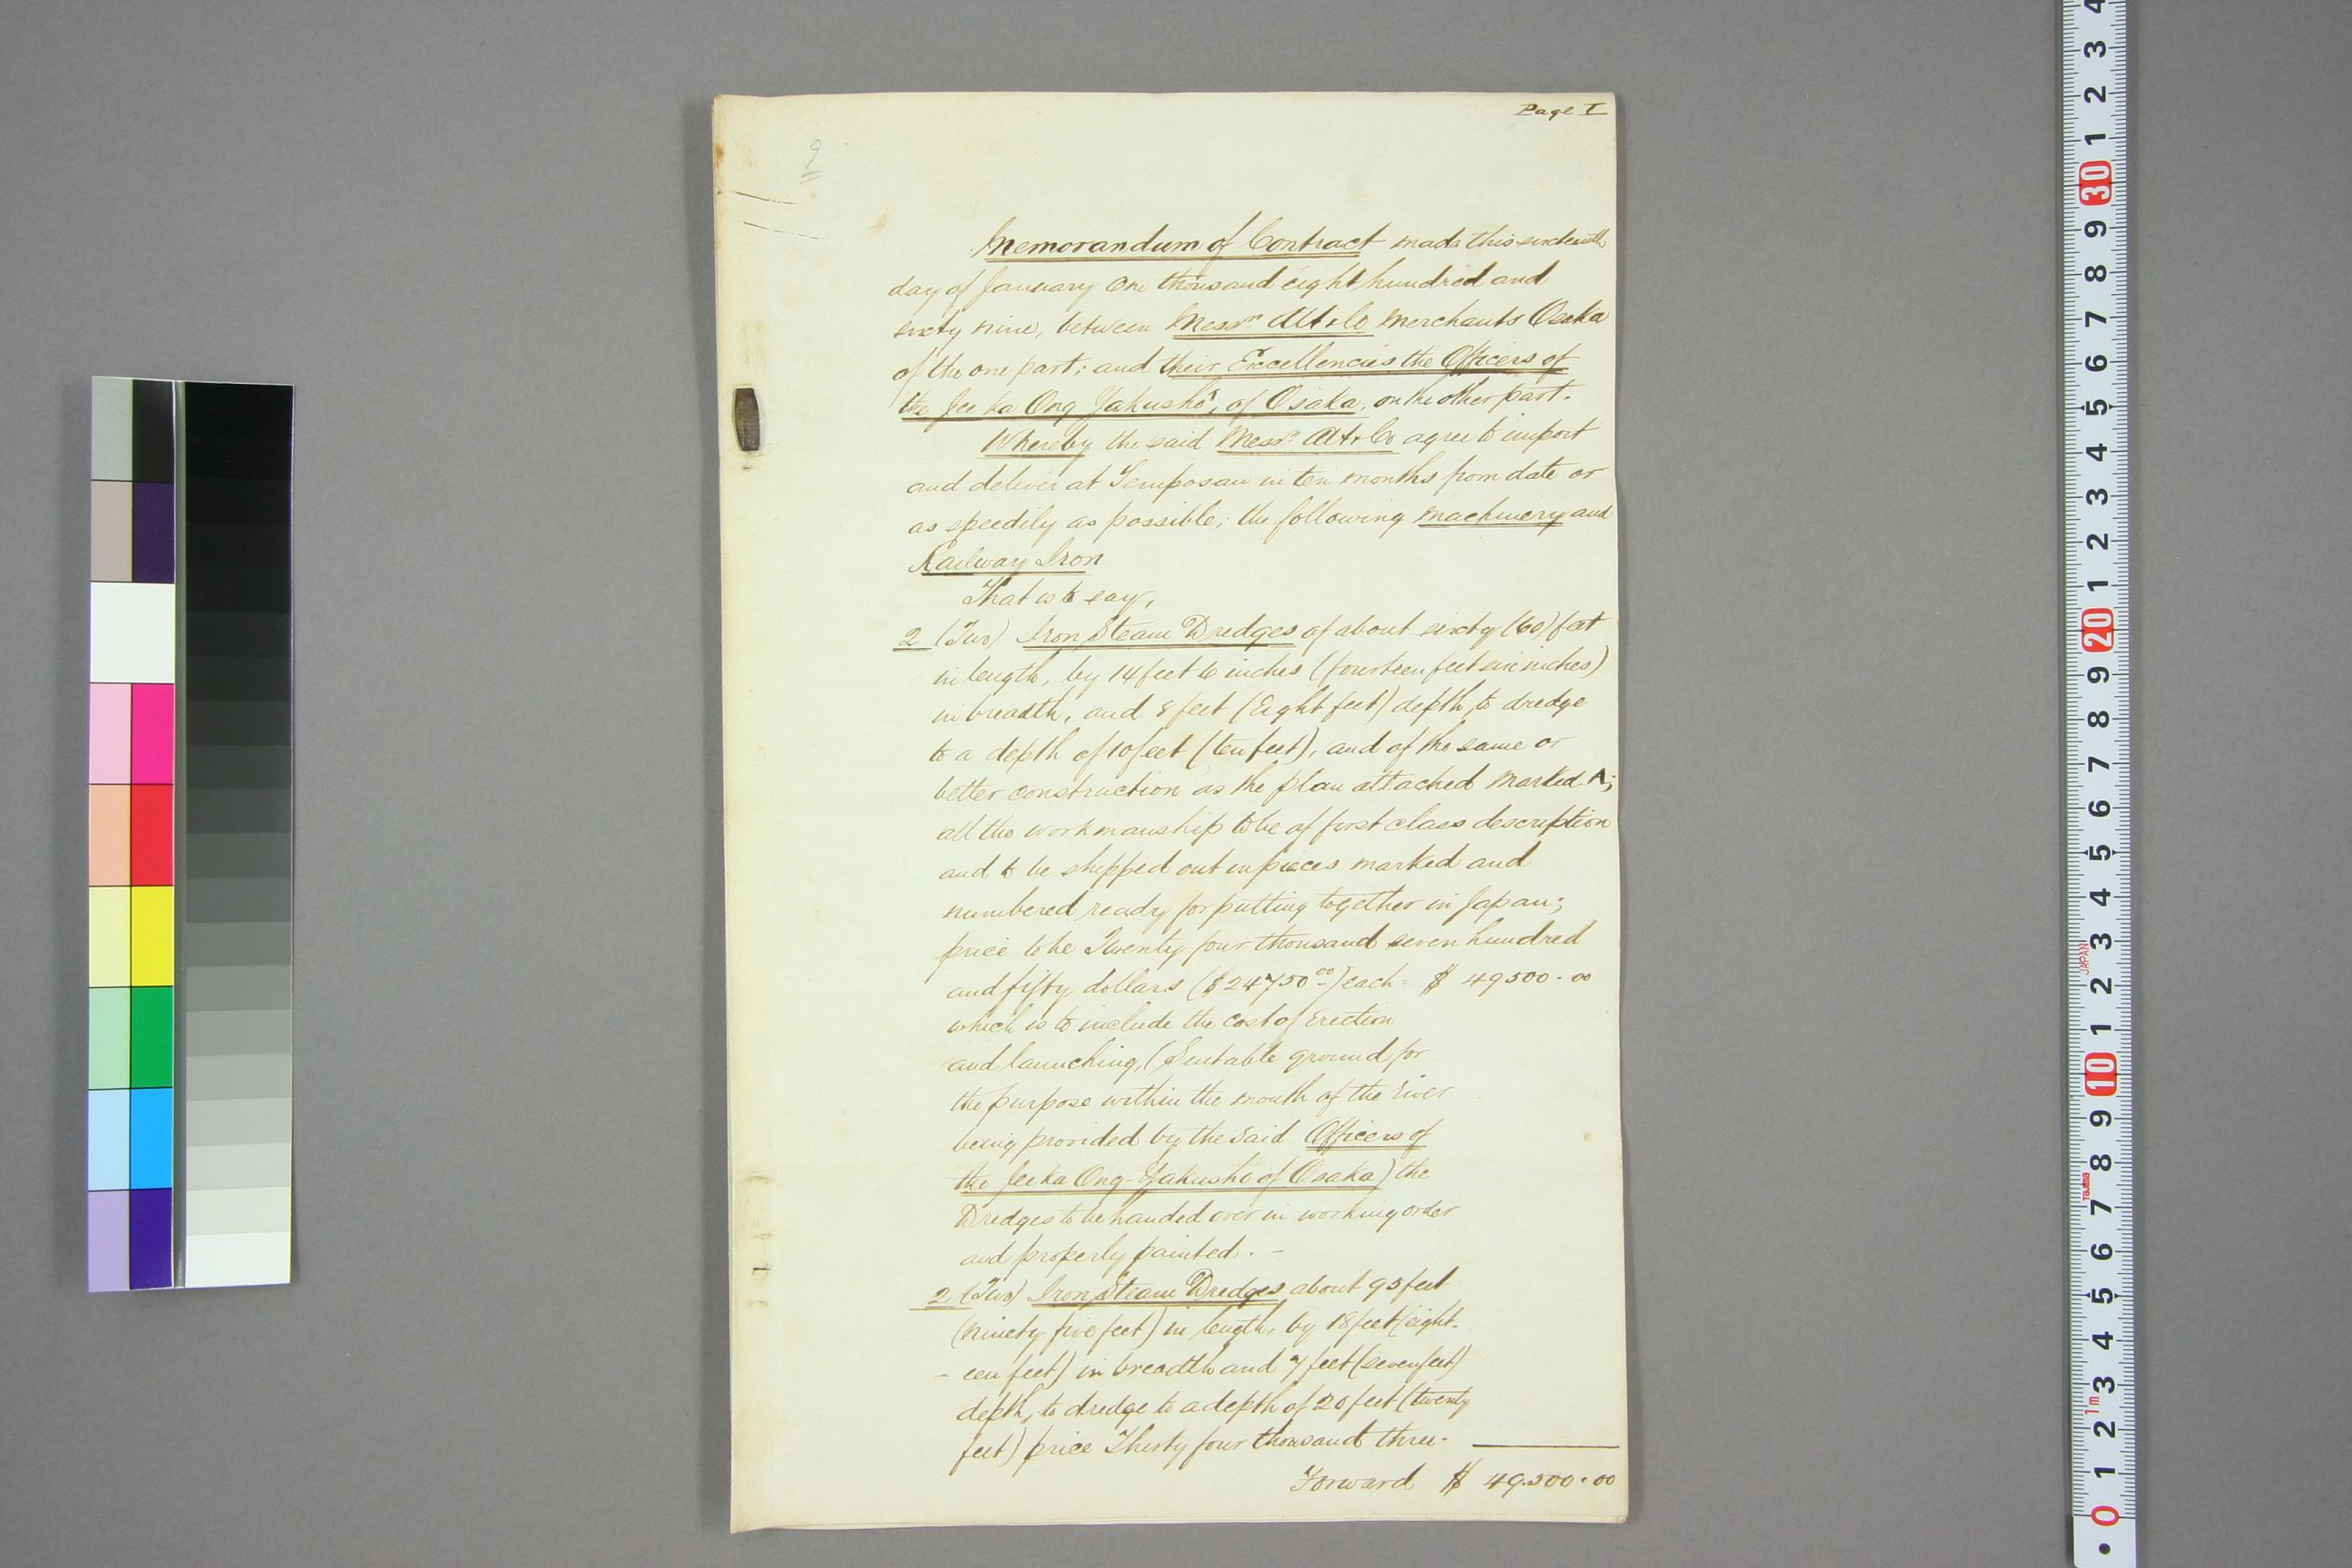 Page I
9
Memorandum of Contract made this sixteenth
day of January One thousand eight hundred and
sixty nine, between Messrs Alt & Co Merchants Osaka
of the one part; and their Excellencies the Officers of
the Jee ka Ong Yakusho, of Osaka, on the other part.
Whereby the said Messrs Alt & Co agree to import
and deliver at Temposan in ten months from date or
as speedily as possible; the following Machinery and
Railway Iron
That is to say,
2 (Two) Iron Steam Dredges of about sixty (60) feet
in length, by 14 feet 6 inches (fourteen feet six inches)
in breadth, and 8 feet (Eight feet) depth, to dredge
to a depth of 10 feet (ten feet), and of the same or
better construction as the plan attached marked A;
all the workmanship to be of first class description
and to be shipped out in pieces marked and
numbered ready for putting together in Japan;
price to be Twenty four thousand seven hundred
and fifty dollars ($24750.00) each = $ 49500.00
which is to include the cost of Erection
and launching, (Suitable ground for
the purpose within the mouth of the River
being provided by the said Officers of
the Jee ka Ong-Yakusho of Osaka) the
Dredges to be handed over in working order
and properly painted. -
2 (Two) Iron Steam Dredges about 95 feet
(ninety five feet) in length, by 18 feet (eight-
- een feet) in breadth and 7 feet (seven feet)
depth, to dredge to a depth of 20 feet (twenty
feet) price Thirty four thousand three-
Forward $ 49.500.00
4
3
2
1
30
9
8
7
6
5
4
3
2
1
20
9
8
7
6
5
4
3
JAPAN
2
1
10
9
8
Tajima
7
6
5
4
3
1m
2
1
0